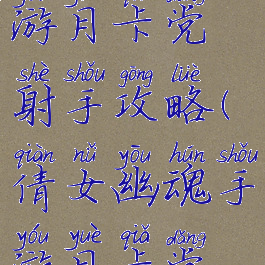 游月卡党
shè shǒu gōng lüè
射手攻略(
qiàn nǚ yōu hún shǒu
倩女幽魂手
yóu yuè qiǎ dǎng
游月卡党